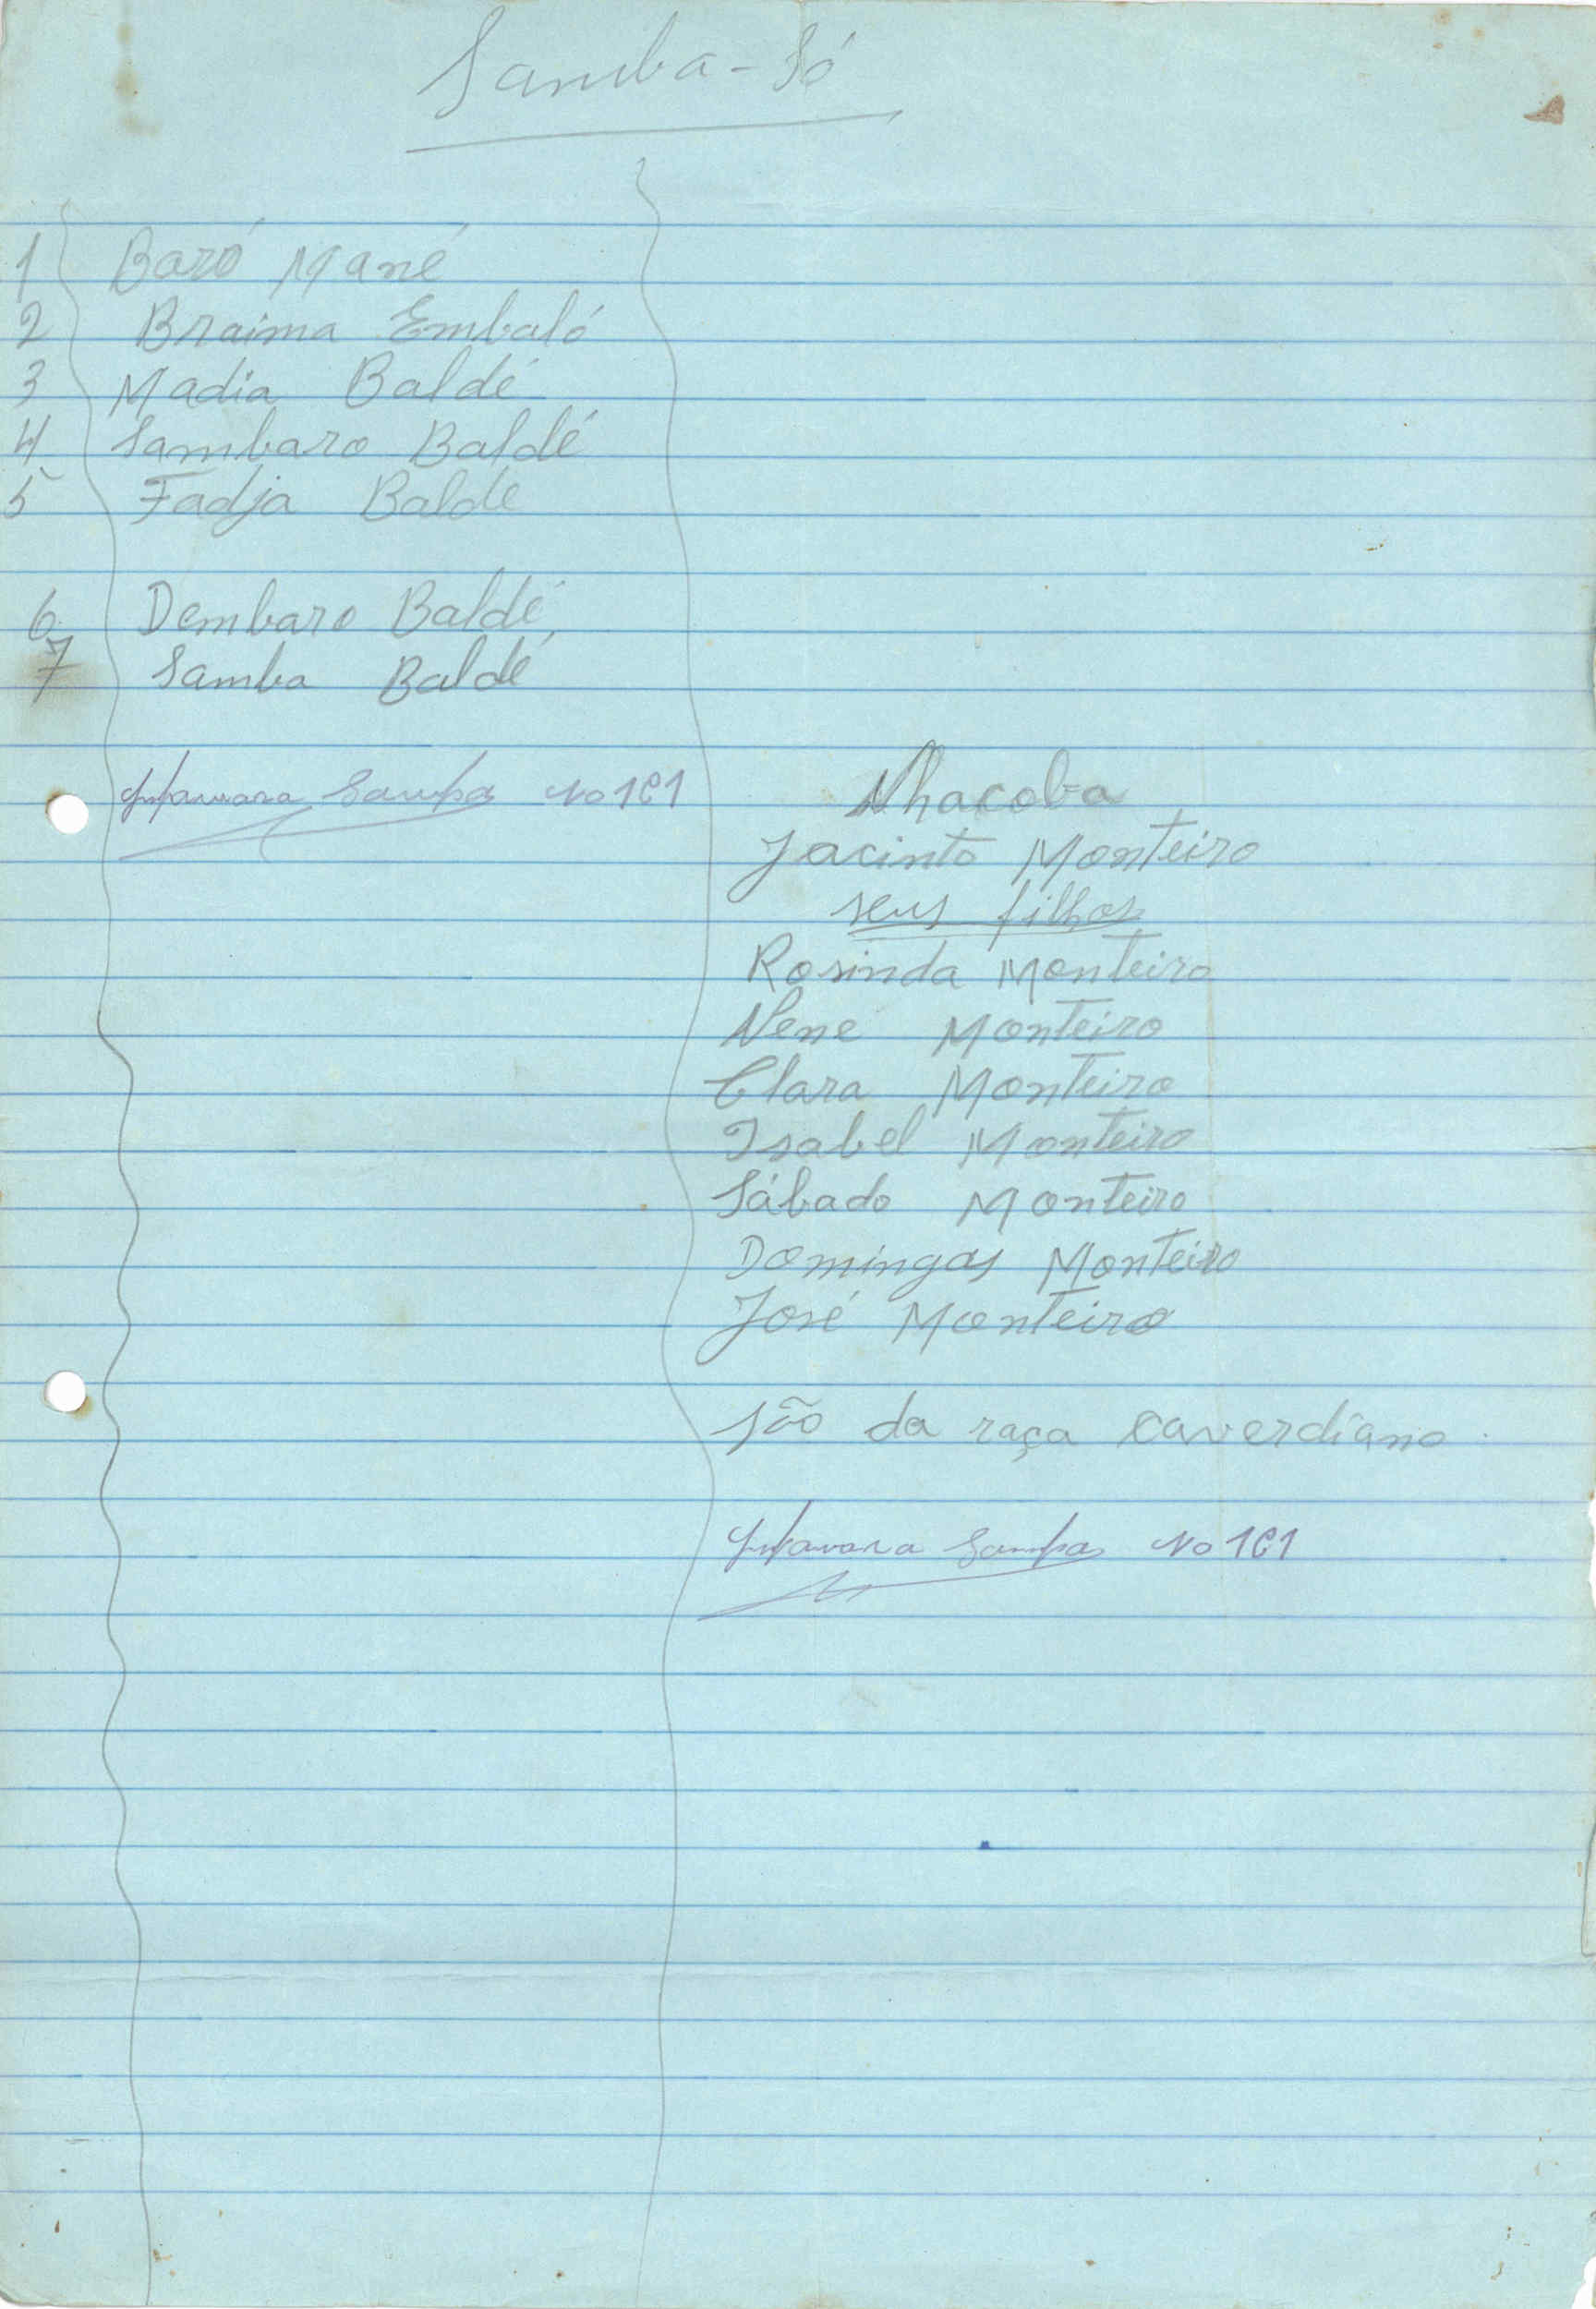 Samba-Só
1 Baró Mané
2 Braima Embaló
3 Madia Baldé
4 Sambaro Baldé
5 Fadja Balde
6 Dembaro Baldé
7 Samba Baldé
Samba No 1
Nhacoba
Jacinto Monteiro
seus filhos
Rosinda Monteiro
Nene Monteiro
Clara Monteiro
Isabel Monteiro
Sábado Monteiro
Domingas Monteiro
José Monteiro
são da raça caverdiano
Samba No 1